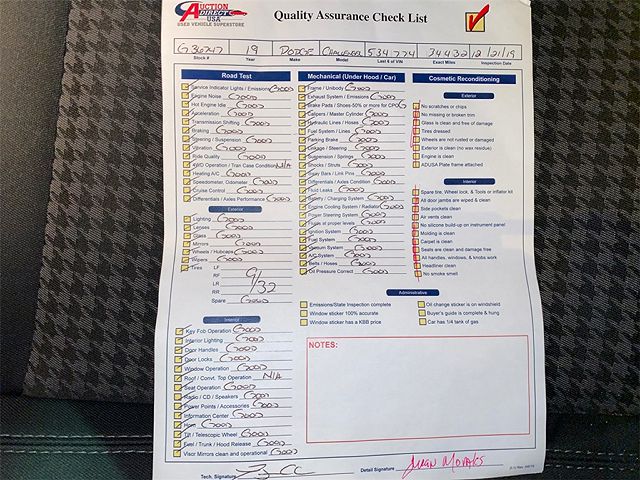 AUCTION
DIRECT
USA
USED VEHICLE SUPERSTORE
Quality Assurance Check List
G36747 19 DODGE CHALLENGER 534774 34432 12/21/19
Stock # Year Make Model Last 6 of VIN Exact Miles Inspection Date
Road Test
Service Indicator Lights / Emissions GOOD
Engine Noise GOOD
Hot Engine Idle GOOD
Acceleration GOOD
Transmission Shifting GOOD
Braking GOOD
Steering / Suspension GOOD
Vibration GOOD
Ride Quality GOOD
4WD Operation / Tran Case Condition N/A
Heating A/C GOOD
Speedometer, Odometer GOOD
Cruise Control GOOD
Differentials / Axles Performance GOOD
Exterior
Lighting GOOD
Lenses GOOD
Glass GOOD
Mirrors GOOD
Wheels / Hubcaps GOOD
Wipers GOOD
Tires LF
RF
LR
RR
9/32
Spare GOOD
Interior
Key Fob Operation GOOD
Interior Lighting GOOD
Door Handles GOOD
Door Locks GOOD
Window Operation GOOD
Roof / Convt. Top Operation N/A
Seat Operation GOOD
Radio / CD / Speakers GOOD
Power Points / Accessories GOOD
Information Center GOOD
Horn GOOD
Tilt / Telescopic Wheel GOOD
Fuel / Trunk / Hood Release GOOD
Visor Mirrors clean and operational GOOD
Mechanical (Under Hood / Car)
Frame / Unibody GOOD
Exhaust System / Emissions GOOD
Brake Pads / Shoes-50% or more for CPO
Calipers / Master Cylinder GOOD
Hydraulic Lines / Hoses GOOD
Fuel System / Lines GOOD
Parking Brake GOOD
Linkage / Steering GOOD
Suspension / Springs GOOD
Shocks / Struts GOOD
Sway Bars / Link Pins GOOD
Differentials / Axles Condition GOOD
Fluid Leaks GOOD
Battery / Charging System GOOD
Engine Cooling System / Radiator GOOD
Power Steering System GOOD
Fluids at proper levels GOOD
Ignition System GOOD
Fuel System GOOD
Vacuum System GOOD
A/C System GOOD
Belts / Hoses GOOD
Oil Pressure Correct GOOD
Cosmetic Reconditioning
Exterior
No scratches or chips
No missing or broken trim
Glass is clean and free of damage
Tires dressed
Wheels are not rusted or damaged
Exterior is clean (no wax residue)
Engine is clean
ADUSA Plate frame attached
Interior
Spare tire, Wheel lock, & Tools or inflator kit
All door jambs are wiped & clean
Side pockets clean
Air vents clean
No silicone build-up on instrument panel
Molding is clean
Carpet is clean
Seats are clean and damage free
All handles, windows, & knobs work
Headliner clean
No smoke smell
Administrative
Emissions/State Inspection complete
Window sticker 100% accurate
Window sticker has a KBB price
Oil change sticker is on windshield
Buyer's guide is complete & hung
Car has 1/4 tank of gas
NOTES:
Tech. Signature
Detail Signature JUAN MORALES